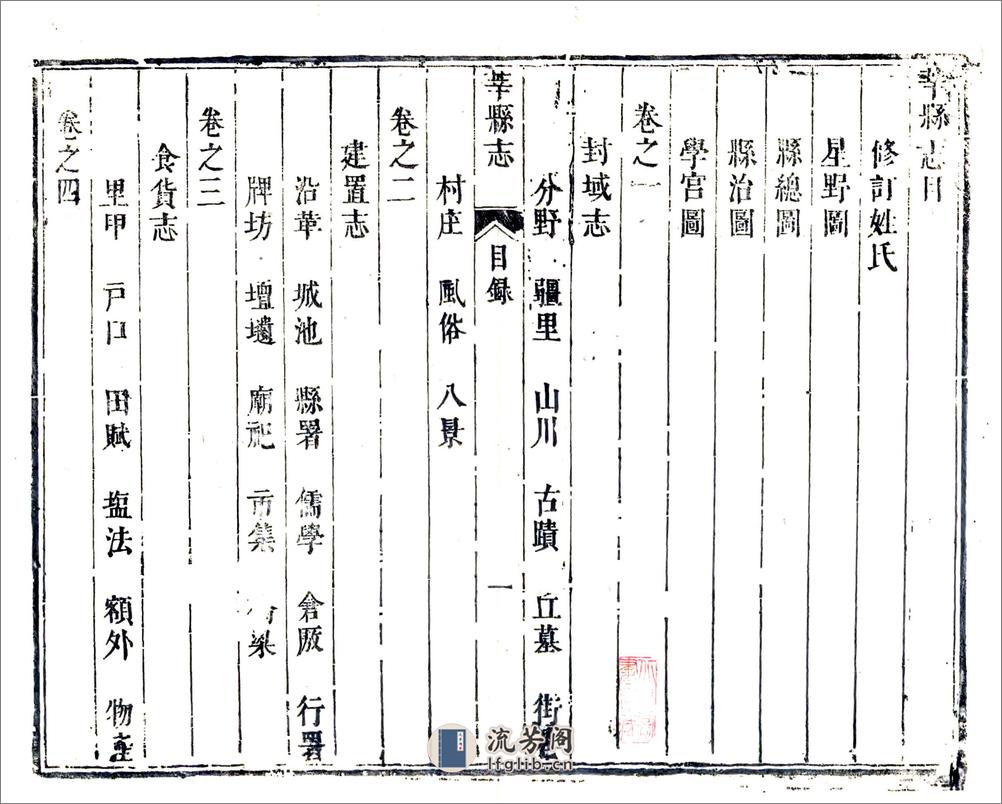 莘縣志目
修訂姓氏
星野圖
縣總圖
縣治圖
學宮圖
卷之一
封域志
分野 疆里 山川 古蹟 丘墓 街
莘縣志 目錄 一
村庄 風俗 八景
卷之二
建置志
沿革 城池 縣署 儒學 倉厫 行署
牌坊 壇壝 廟祀 市集 梁
卷之三
食貨志
里甲 戸口 田賦 塩法 額外 物產
卷之四
流芳阁
lfglib.cn